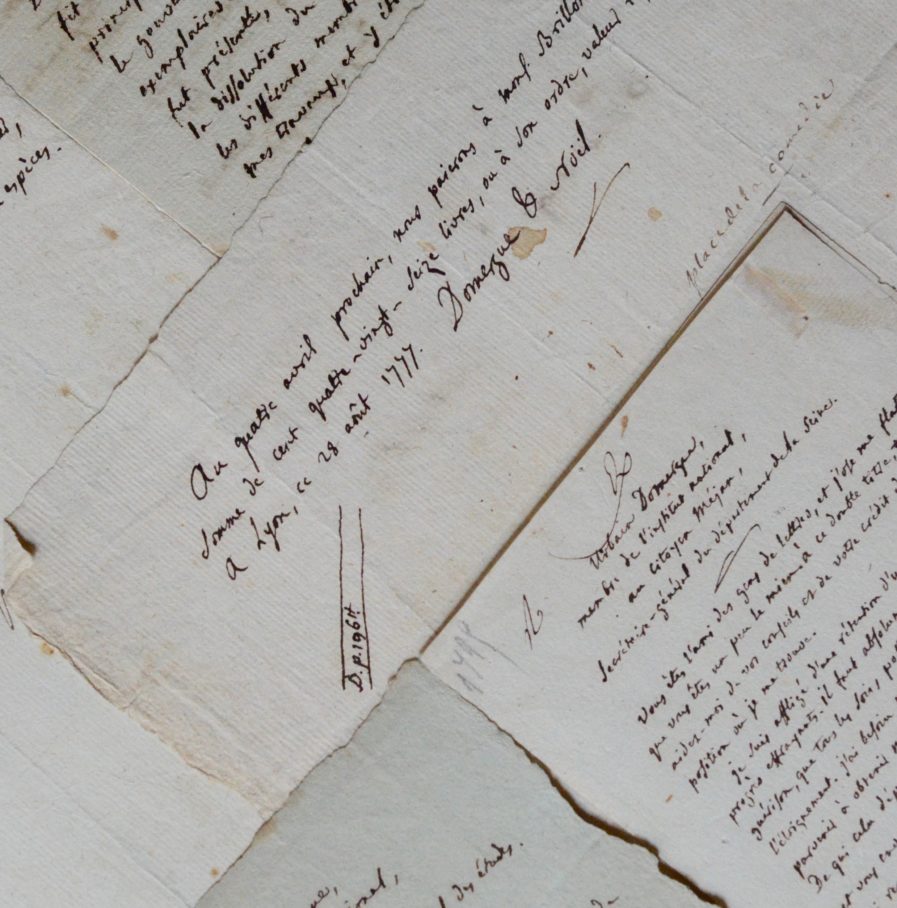 fit
principe
le gouve
exemplaires
fut présentée,
la dissolution du
les différents membr
mes travaux, et d'êtr
espèces.
Au quatre avril prochain, nous paierons à monf. Brillon
somme de cent quatre-vingt-seize livres, ou à son ordre, valeur
A Lyon, ce 28 août 1777. Domergue & Noël.
place de la comédie
D.p.1964
Urbain Domergue,
membre de l'institut national,
au citoyen Méjan,
Secrétaire-général du département de la Seine.
Vous êtes l'ami des gens de lettres, et j'ose me flat
que vous êtes un peu le mien: à ce double titre,
aidez-moi de vos conseils et de votre crédit d
position où je me trouve.
Je suis affligé d'une rétention d'u
progrès effrayants. il faut absolum
guérison, que tous les soins, pa
l'éloignement. j'ai besoin
parvenir à obtenir
De qui cela dép
et vous con
nal,
l des études.
de